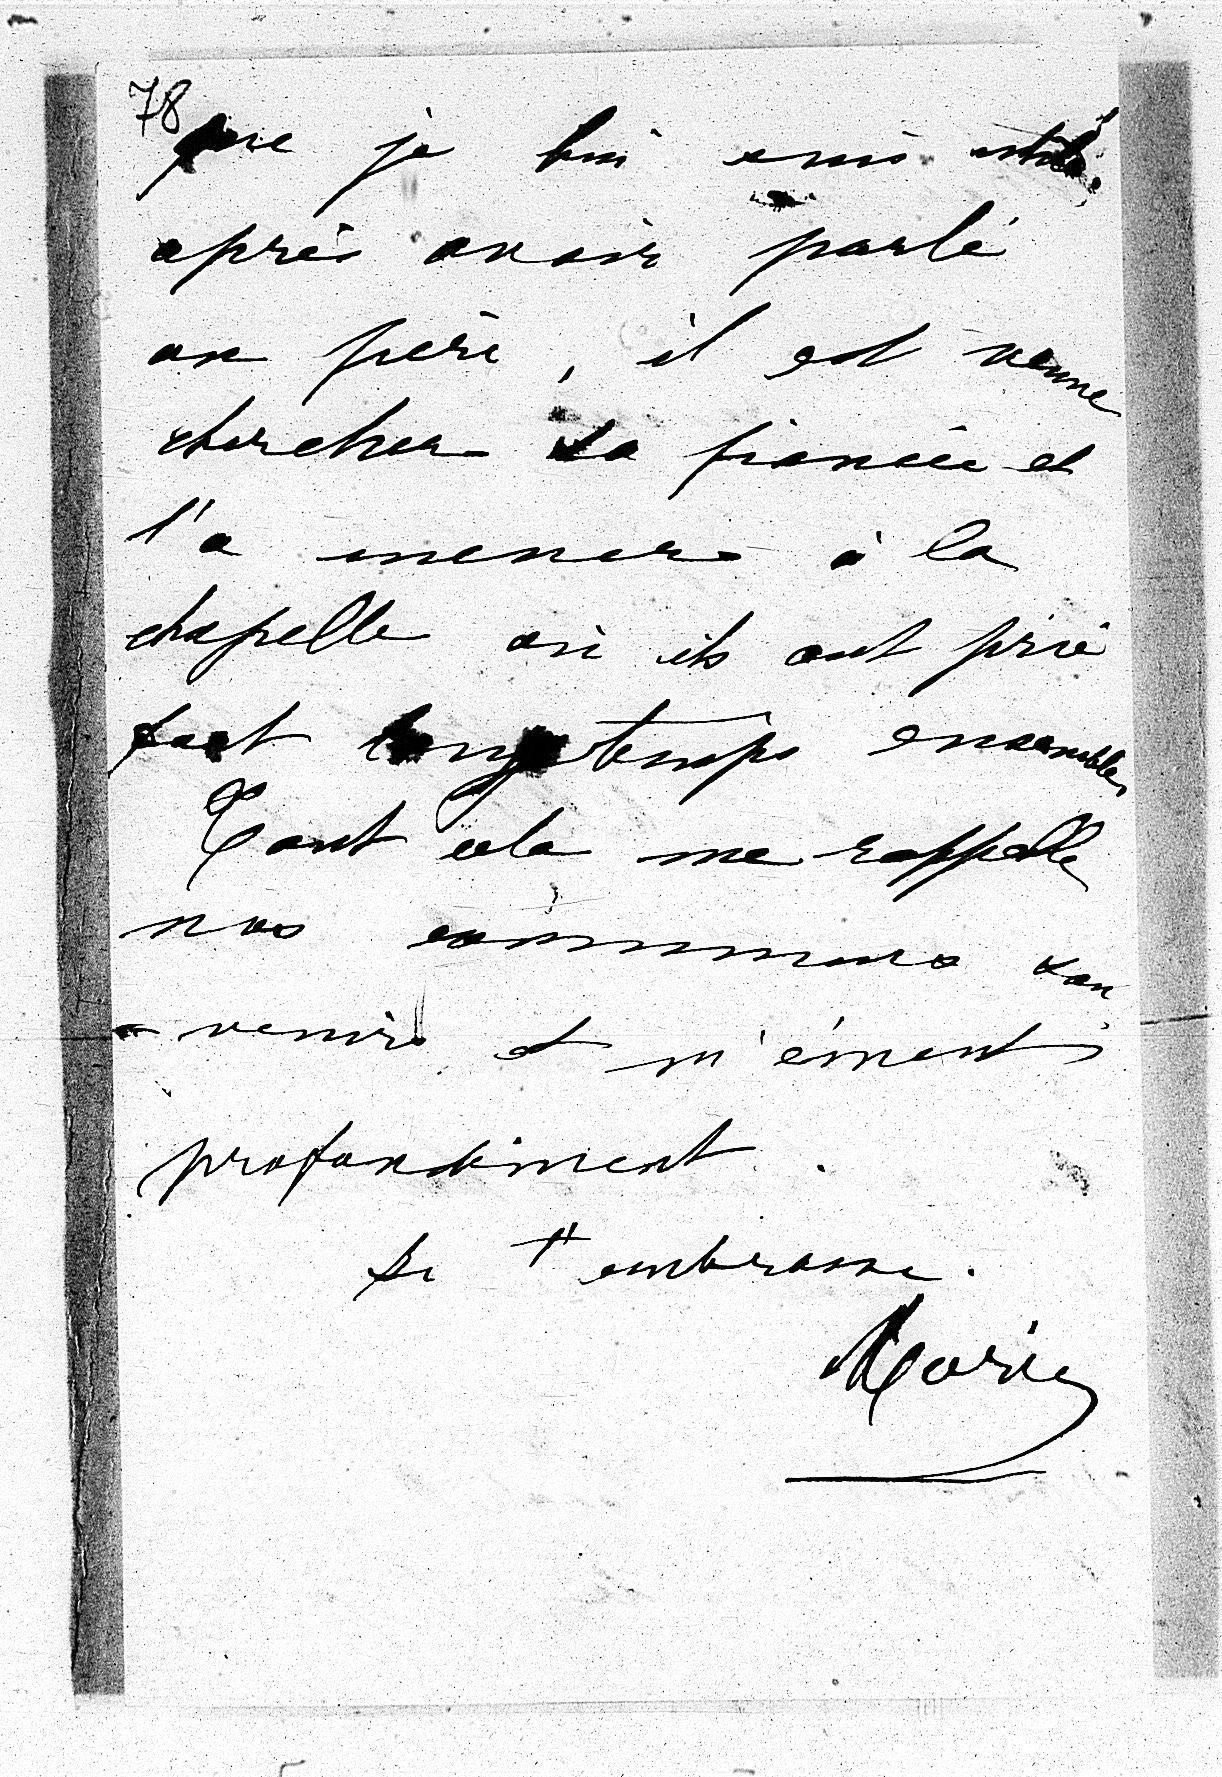 78
que je lui suis utile.
après avoir parlé
au père, il est venu
chercher sa fiancée et
l'a mener à la
chapelle où ils ont prié
fort longtemps ensembles
Tout cela me rappelle
nos communs sou
- venirs et m'émeut
profondément.
Je t'embrasse.
Marie